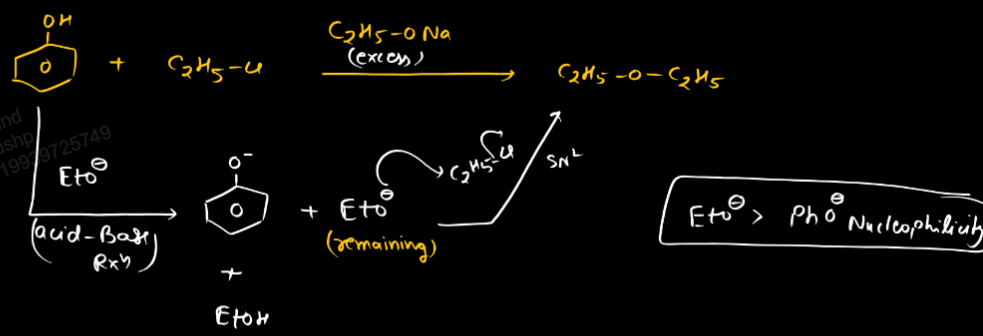 OH
+ C2H5-Cl
C2H5-ONa
(excess)
C2H5-O-C2H5
19939725749
Eto⊖
(acid-Base
Rxn)
O-
+ Eto⊖
(remaining)
C2H5-Cl
SN2
+
EtOH
Eto⊖ > Pho⊖ Nucleophilicity